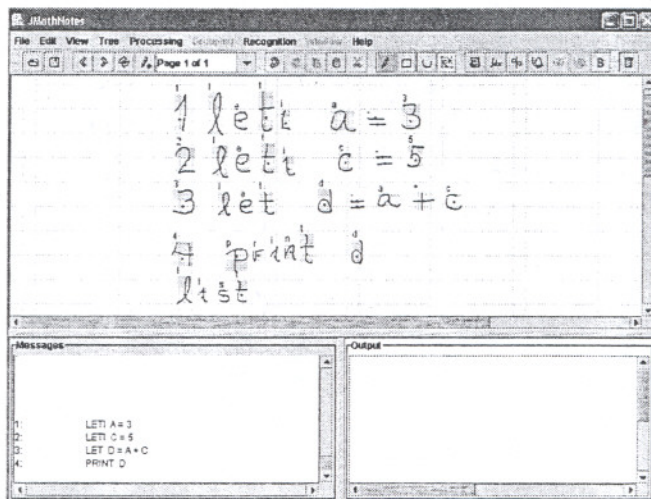 JMathNotes
File Edit View Tree Processing Recognition Help
Page 1 of 1
1 leti a = 3
2 leti c = 5
3 let d = a + c
4 print d
list
Messages
Output
1: LETI A = 3
2: LETI C = 5
3: LET D = A + C
4: PRINT D